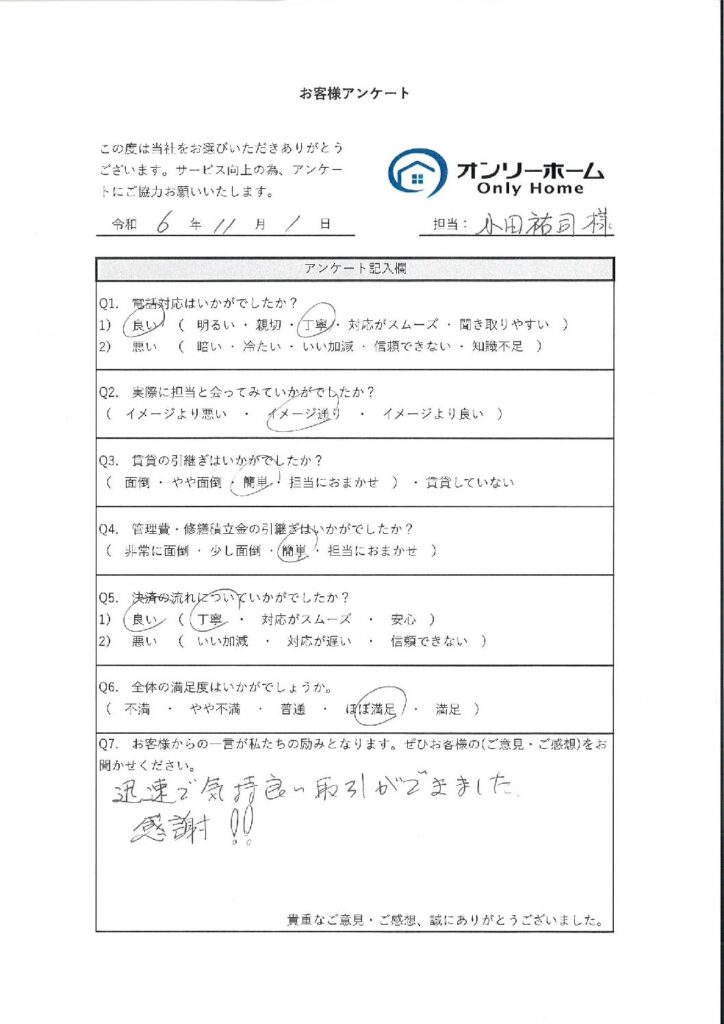 お客様アンケート
この度は当社をお選びいただきありがとう
ございます。サービス向上の為、アンケー
トにご協力お願いいたします。
オンリーホーム
Only Home
令和 6 年 11 月 1 日
担当： 小田祐司様
アンケート記入欄
Q1. 電話対応はいかがでしたか？
1) 良い （ 明るい ・ 親切 ・ 丁寧 ・ 対応がスムーズ ・ 聞き取りやすい ）
2) 悪い （ 暗い ・ 冷たい ・ いい加減 ・ 信頼できない ・ 知識不足 ）
Q2. 実際に担当と会ってみていかがでしたか？
（ イメージより悪い ・ イメージ通り ・ イメージより良い ）
Q3. 賃貸の引継ぎはいかがでしたか？
（ 面倒 ・ やや面倒 ・ 簡単 ・ 担当におまかせ ） ・ 賃貸していない
Q4. 管理費・修繕積立金の引継ぎはいかがでしたか？
（ 非常に面倒 ・ 少し面倒 ・ 簡単 ・ 担当におまかせ ）
Q5. 決済の流れについていかがでしたか？
1) 良い （ 丁寧 ・ 対応がスムーズ ・ 安心 ）
2) 悪い （ いい加減 ・ 対応が遅い ・ 信頼できない ）
Q6. 全体の満足度はいかがでしょうか。
（ 不満 ・ やや不満 ・ 普通 ・ ほぼ満足 ・ 満足 ）
Q7. お客様からの一言が私たちの励みとなります。ぜひお客様の(ご意見・ご感想)をお
聞かせください。
迅速で気持良い取引ができました
感謝!!
貴重なご意見・ご感想、誠にありがとうございました。